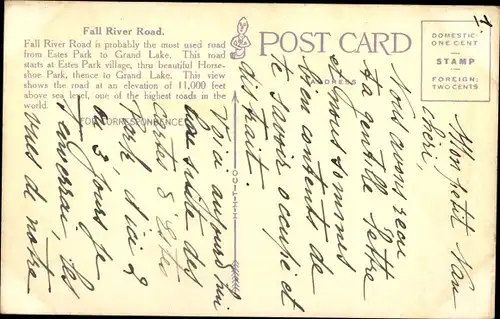 Fall River Road.
Fall River Road is probably the most used road
from Estes Park to Grand Lake. This road
starts at Estes Park village, thru beautiful Horse-
shoe Park, thence to Grand Lake. This view
shows the road at an elevation of 11,000 feet
above sea level, one of the highest roads in the
world.
FOR CORRESPONDENCE
POST CARD
ADDRESS
DOMESTIC
ONE CENT
STAMP
FOREIGN
TWO CENTS
H-H-T-CO
1.
Mon petit Nan
chéri,
Nous avons reçu
ta gentille lettre
et nous sommes
bien contents de
te savoir occupé et
distrait.
Voici aujourd'hui
une suite des
cartes d'Estes
Park d'ici 2
ou 3 jours je
t'enverrai les
vues de notre